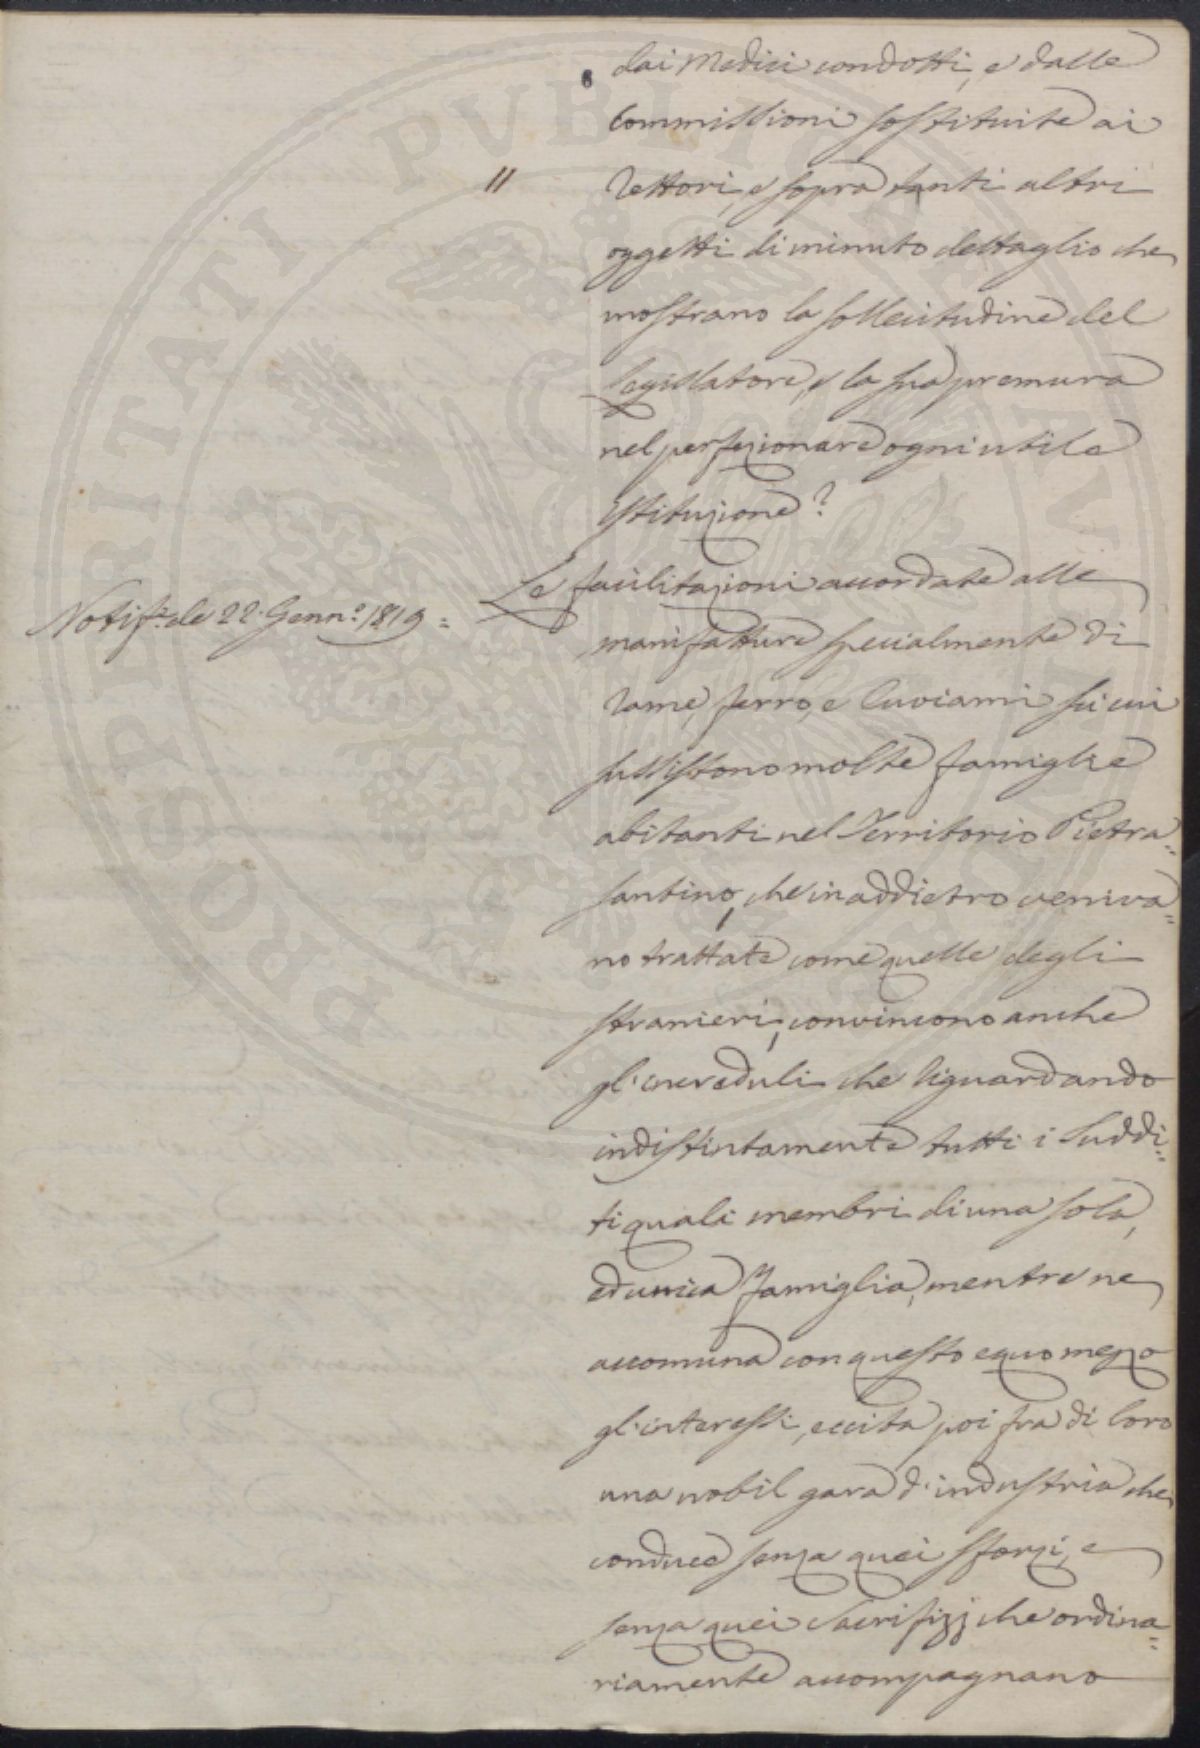 dai Medici condotti, e dalle
Commissioni sostituite ai
"
Rettori, e sopra tanti altri
oggetti di minuto dettaglio che
mostrano la sollecitudine del
Legislatore, e la sua premura
nel perfezionare ogni utile
istituzione?
Le facilitazioni accordate alle
Notif.e de 22. Genn.o 1819 =
manifatture specialmente di
rame, ferro, e Cuoiami su cui
sussistono molte famiglie
abitanti nel Territorio Pietra=
santino, che in addietro veniva=
no trattate come quelle degli
stranieri, convincono anche
gl'increduli che riguardando
indistintamente tutti i Suddi=
ti quali membri di una sola,
ed unica famiglia, mentre ne
accomuna con questo equo mezzo
gl'interessi, eccita poi fra di loro
una nobil gara d'industria che
conduce senza quei sforzi, e
senza quei Sacrifizj che ordina=
riamente accompagnano
PROSPERITATI PVBLICAE